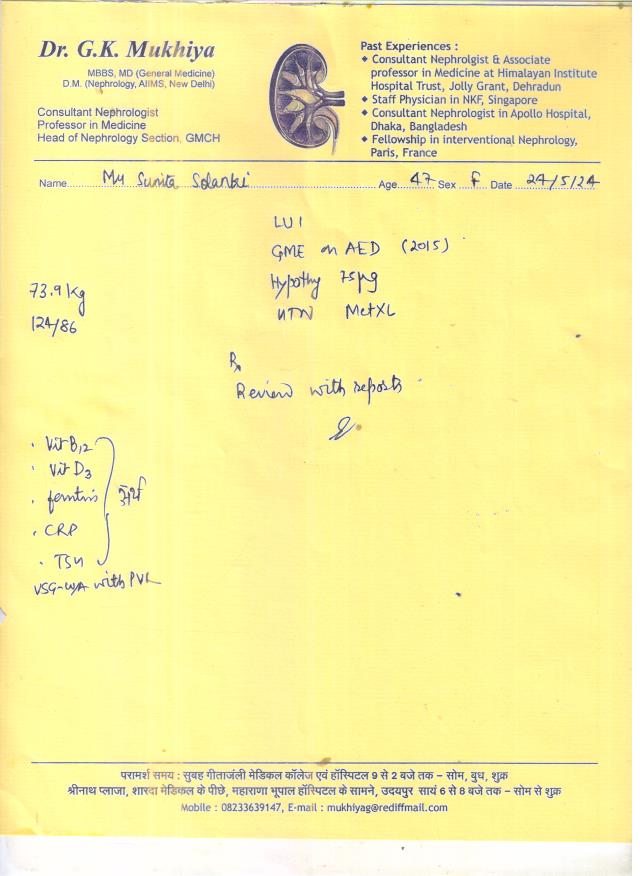 Dr. G.K. Mukhiya
MBBS, MD (General Medicine)
D.M. (Nephrology, AIIMS, New Delhi)
Consultant Nephrologist
Professor in Medicine
Head of Nephrology Section, GMCH
Past Experiences :
◆ Consultant Nephrolgist & Associate
professor in Medicine at Himalayan Institute
Hospital Trust, Jolly Grant, Dehradun
◆ Staff Physician in NKF, Singapore
◆ Consultant Nephrologist in Apollo Hospital,
Dhaka, Bangladesh
◆ Fellowship in interventional Nephrology,
Paris, France
Name Ms Sunita Solanki Age 47 Sex F Date 24/5/24
LUI
GME on AED (2015)
Hypothy 75µg
HTN MetXL
73.9 kg
124/86
Rx
Review with reports
· Vit B12
· Vit D3
· ferritin
· CRP
· TSH
USG-W/A with PVR
परामर्श समय : सुबह गीताजंली मेडिकल कॉलेज एवं हॉस्पिटल 9 से 2 बजे तक – सोम, बुध, शुक्र
श्रीनाथ प्लाजा, शारदा मेडिकल के पीछे, महाराणा भूपाल हॉस्पिटल के सामने, उदयपुर सायं 6 से 8 बजे तक – सोम से शुक्र
Mobile : 08233639147, E-mail : mukhiyag@rediffmail.com